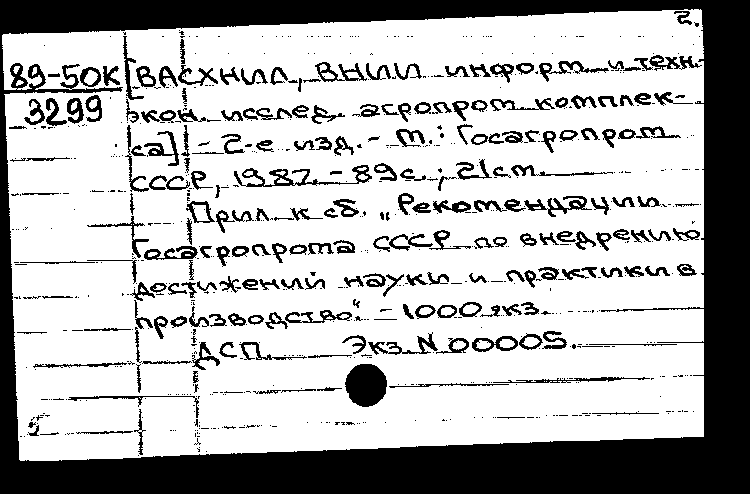 2.
89-50К [ВАСХНИЛ, ВНИИ информ. и техн.-
3299 экон. исслед. агропром. комплек-
са]. - 2-е изд. - М.: Госагропром
СССР, 1987. - 89 с.; 21 см.
Прил. к сб. „Рекомендации
Госагропрома СССР по внедрению
достижений науки и практики в
производство". - 1000 экз.
ДСП. Экз. N 00005.
б